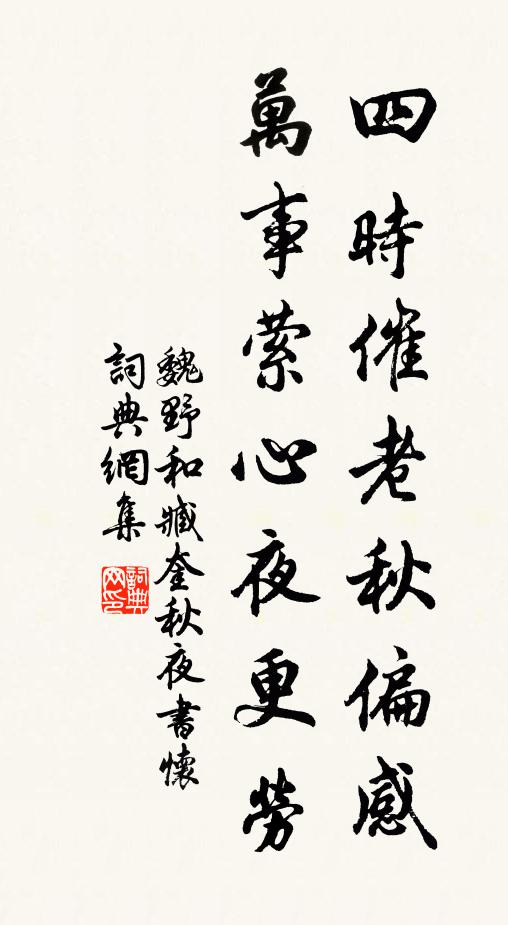 四時催老秋偏感
萬事縈心夜更勞
魏野和臧奎秋夜書懷
詞典網集
詞典
网印